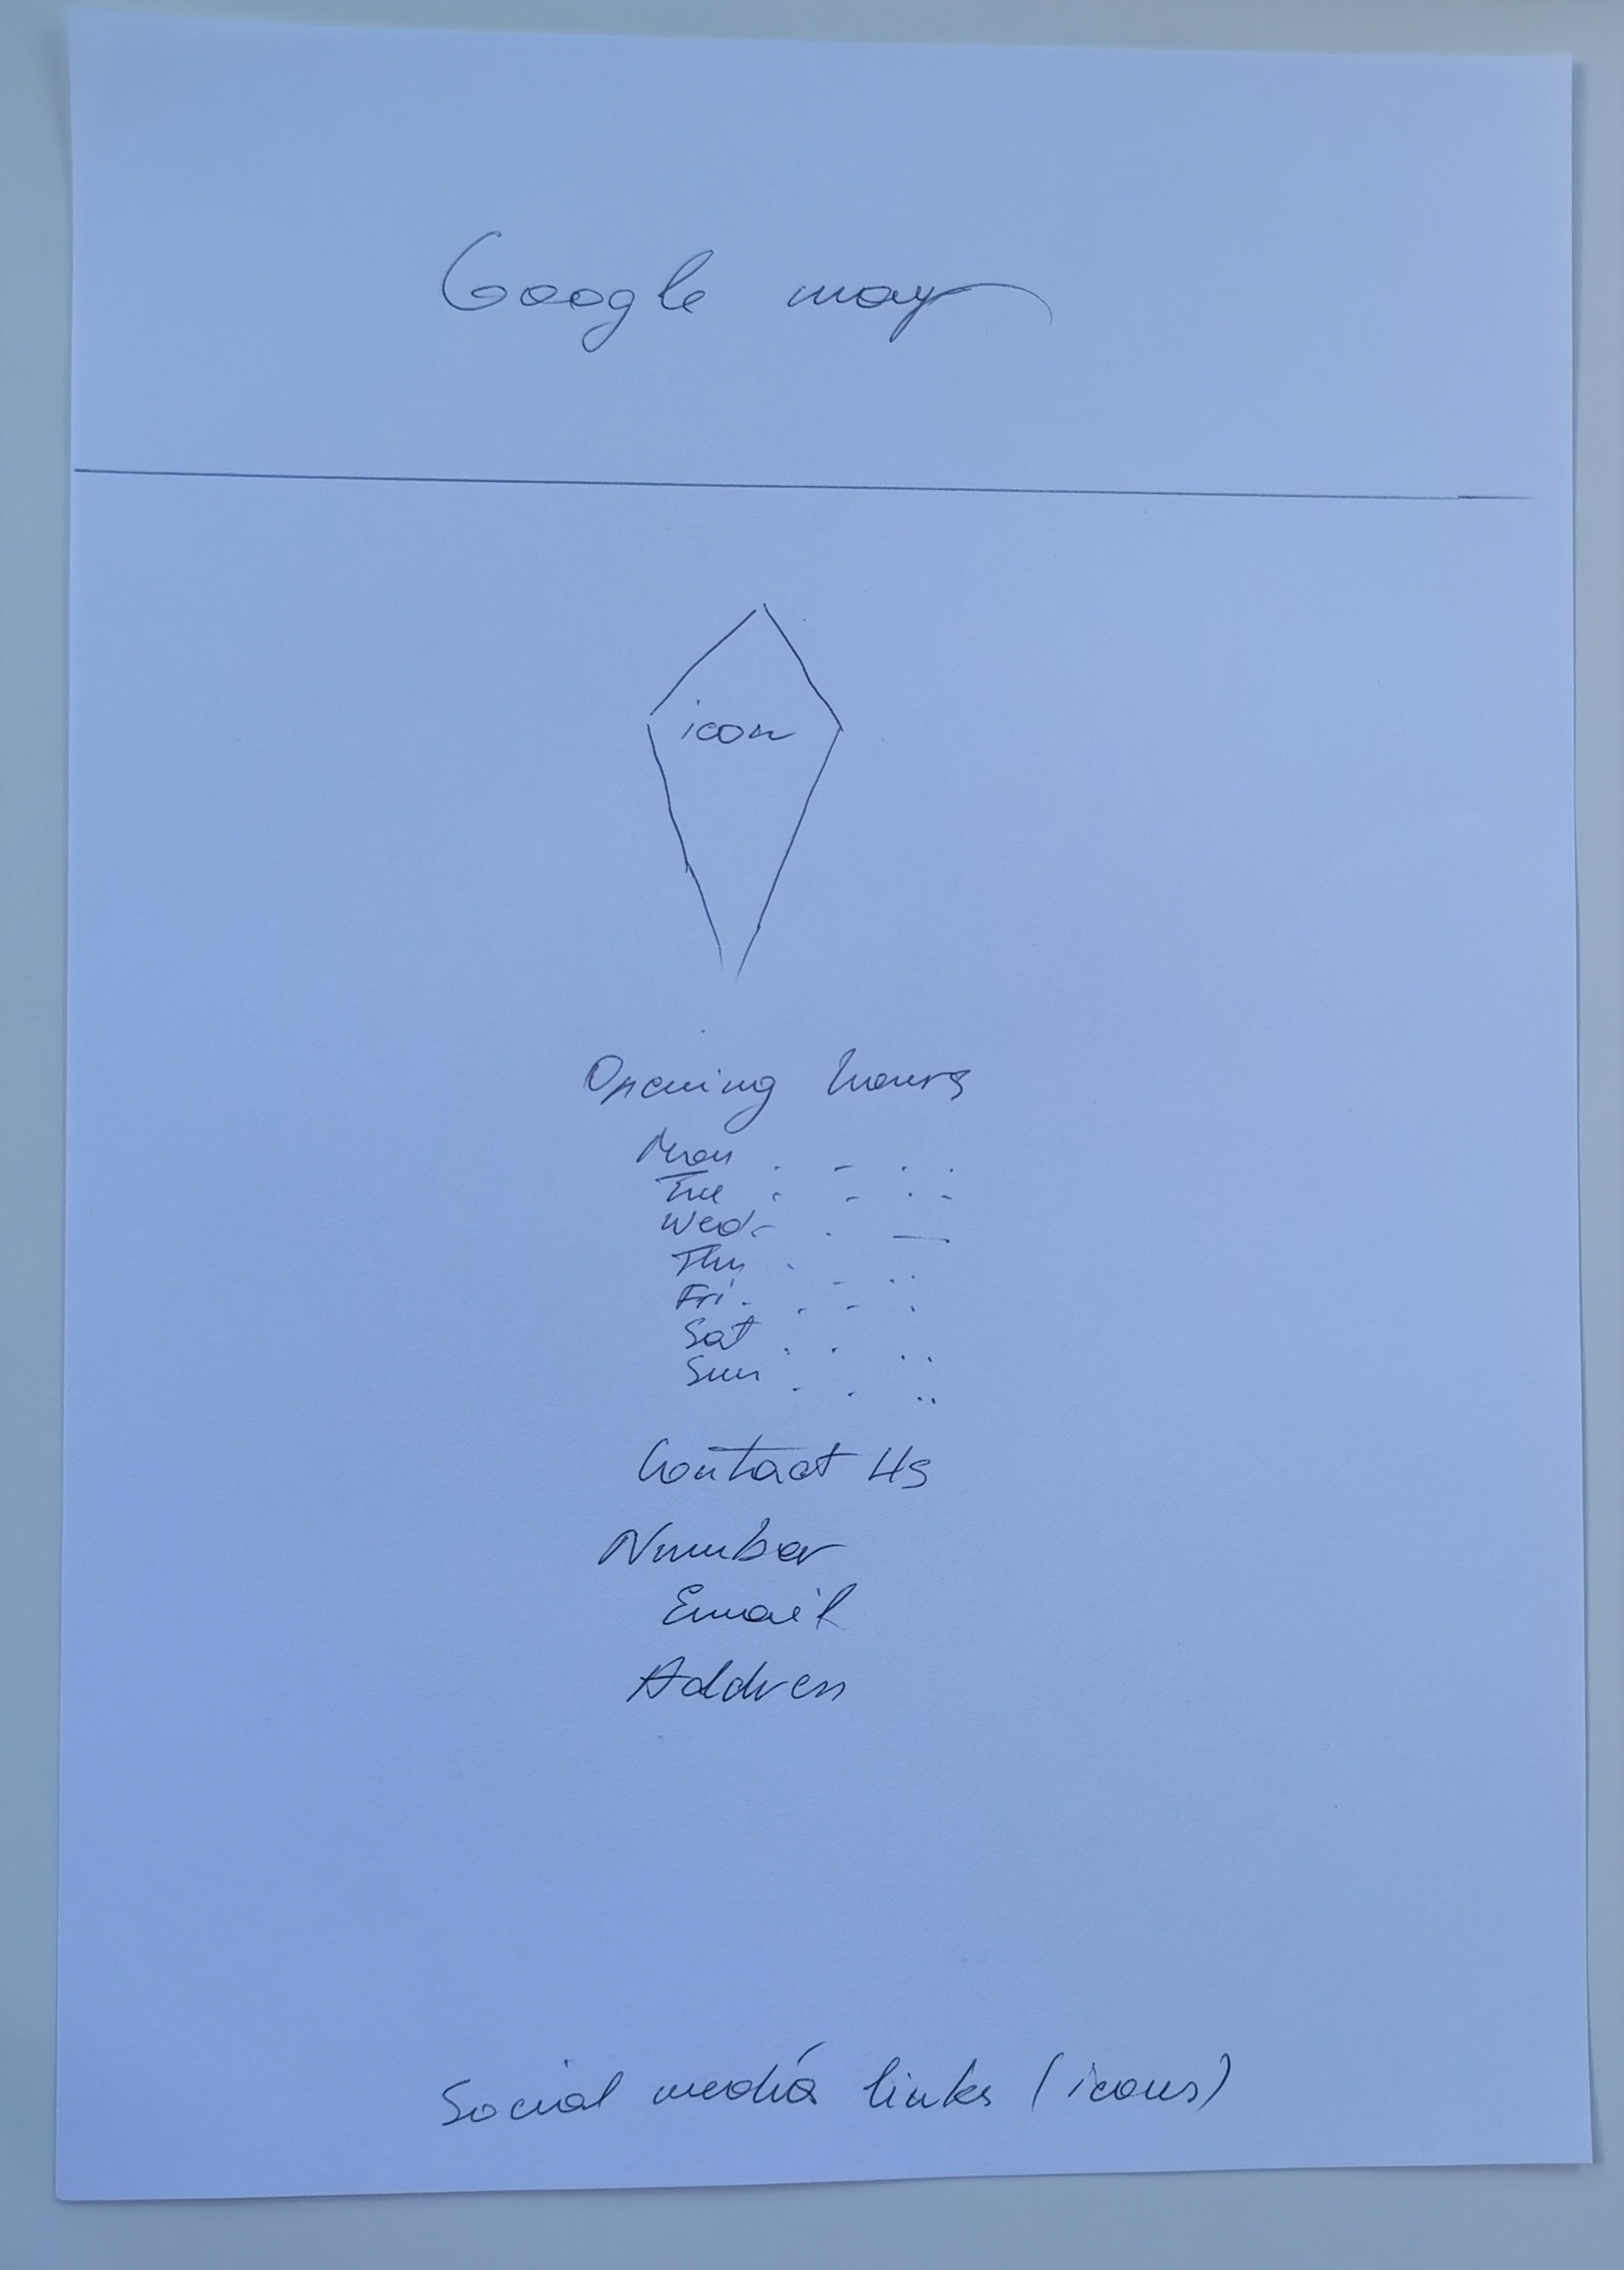 Google map
icon
Opening hours
Mon . - . .
Tue . - . -
Wed - . —
Thu . - . .
Fri . . - .
Sat . . . .
Sun . . . .
Contact Us
Number
Email
Address
Social media links (icons)